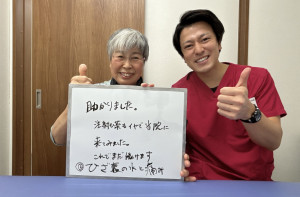 助かりました。
注射も薬もイヤで当院に
来てみました。
これでまだ働けます
ひざ裏の水と痛み